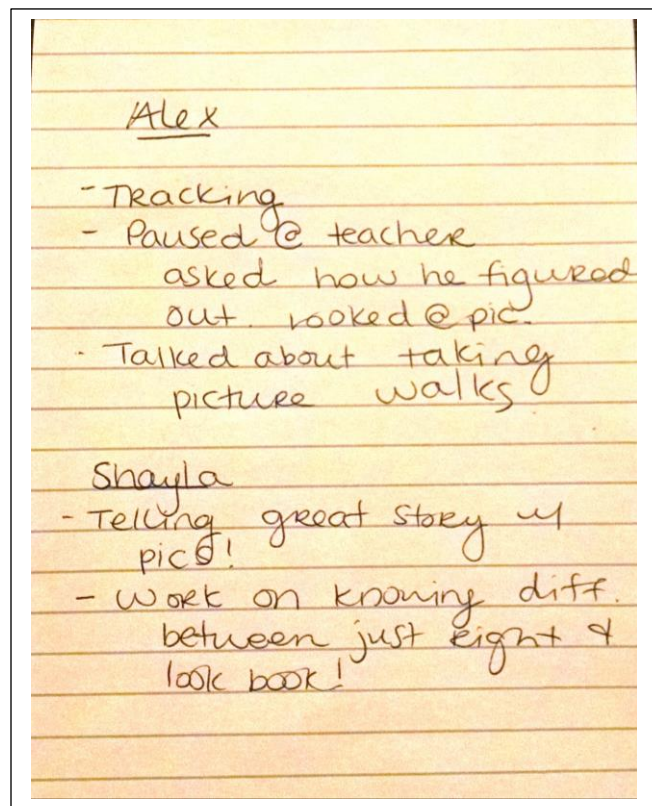 Alex
- Tracking
- Paused @ teacher
asked how he figured
out. Looked @ pic.
- Talked about taking
picture walks
Shayla
- Telling great story w/
pics!
- Work on knowing diff.
between just right &
look book!